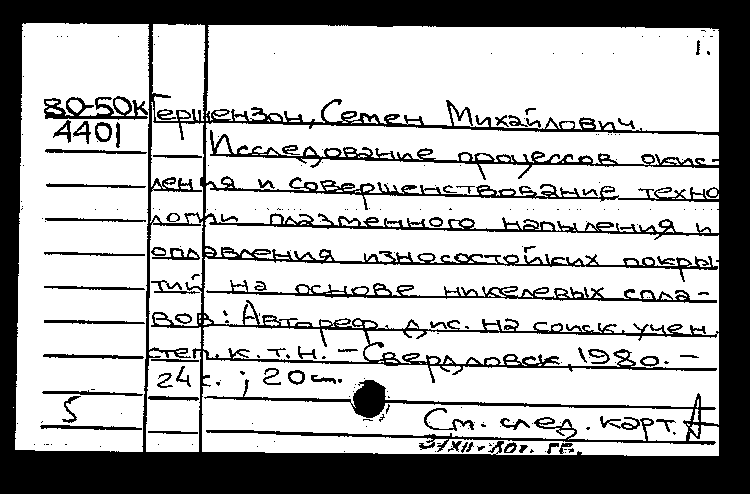 1.
80-50К Гершензон, Семен Михайлович.
4401
Исследование процессов окис-
ления и совершенствование техно
логии плазменного напыления и
оплавления износостойких покры-
тий на основе никелевых спла-
вов: Автореф. дис. на соиск. учен.
степ. к. т. н. – Свердловск, 1980. –
24 с. ; 20 см.
5
См. след. карт.